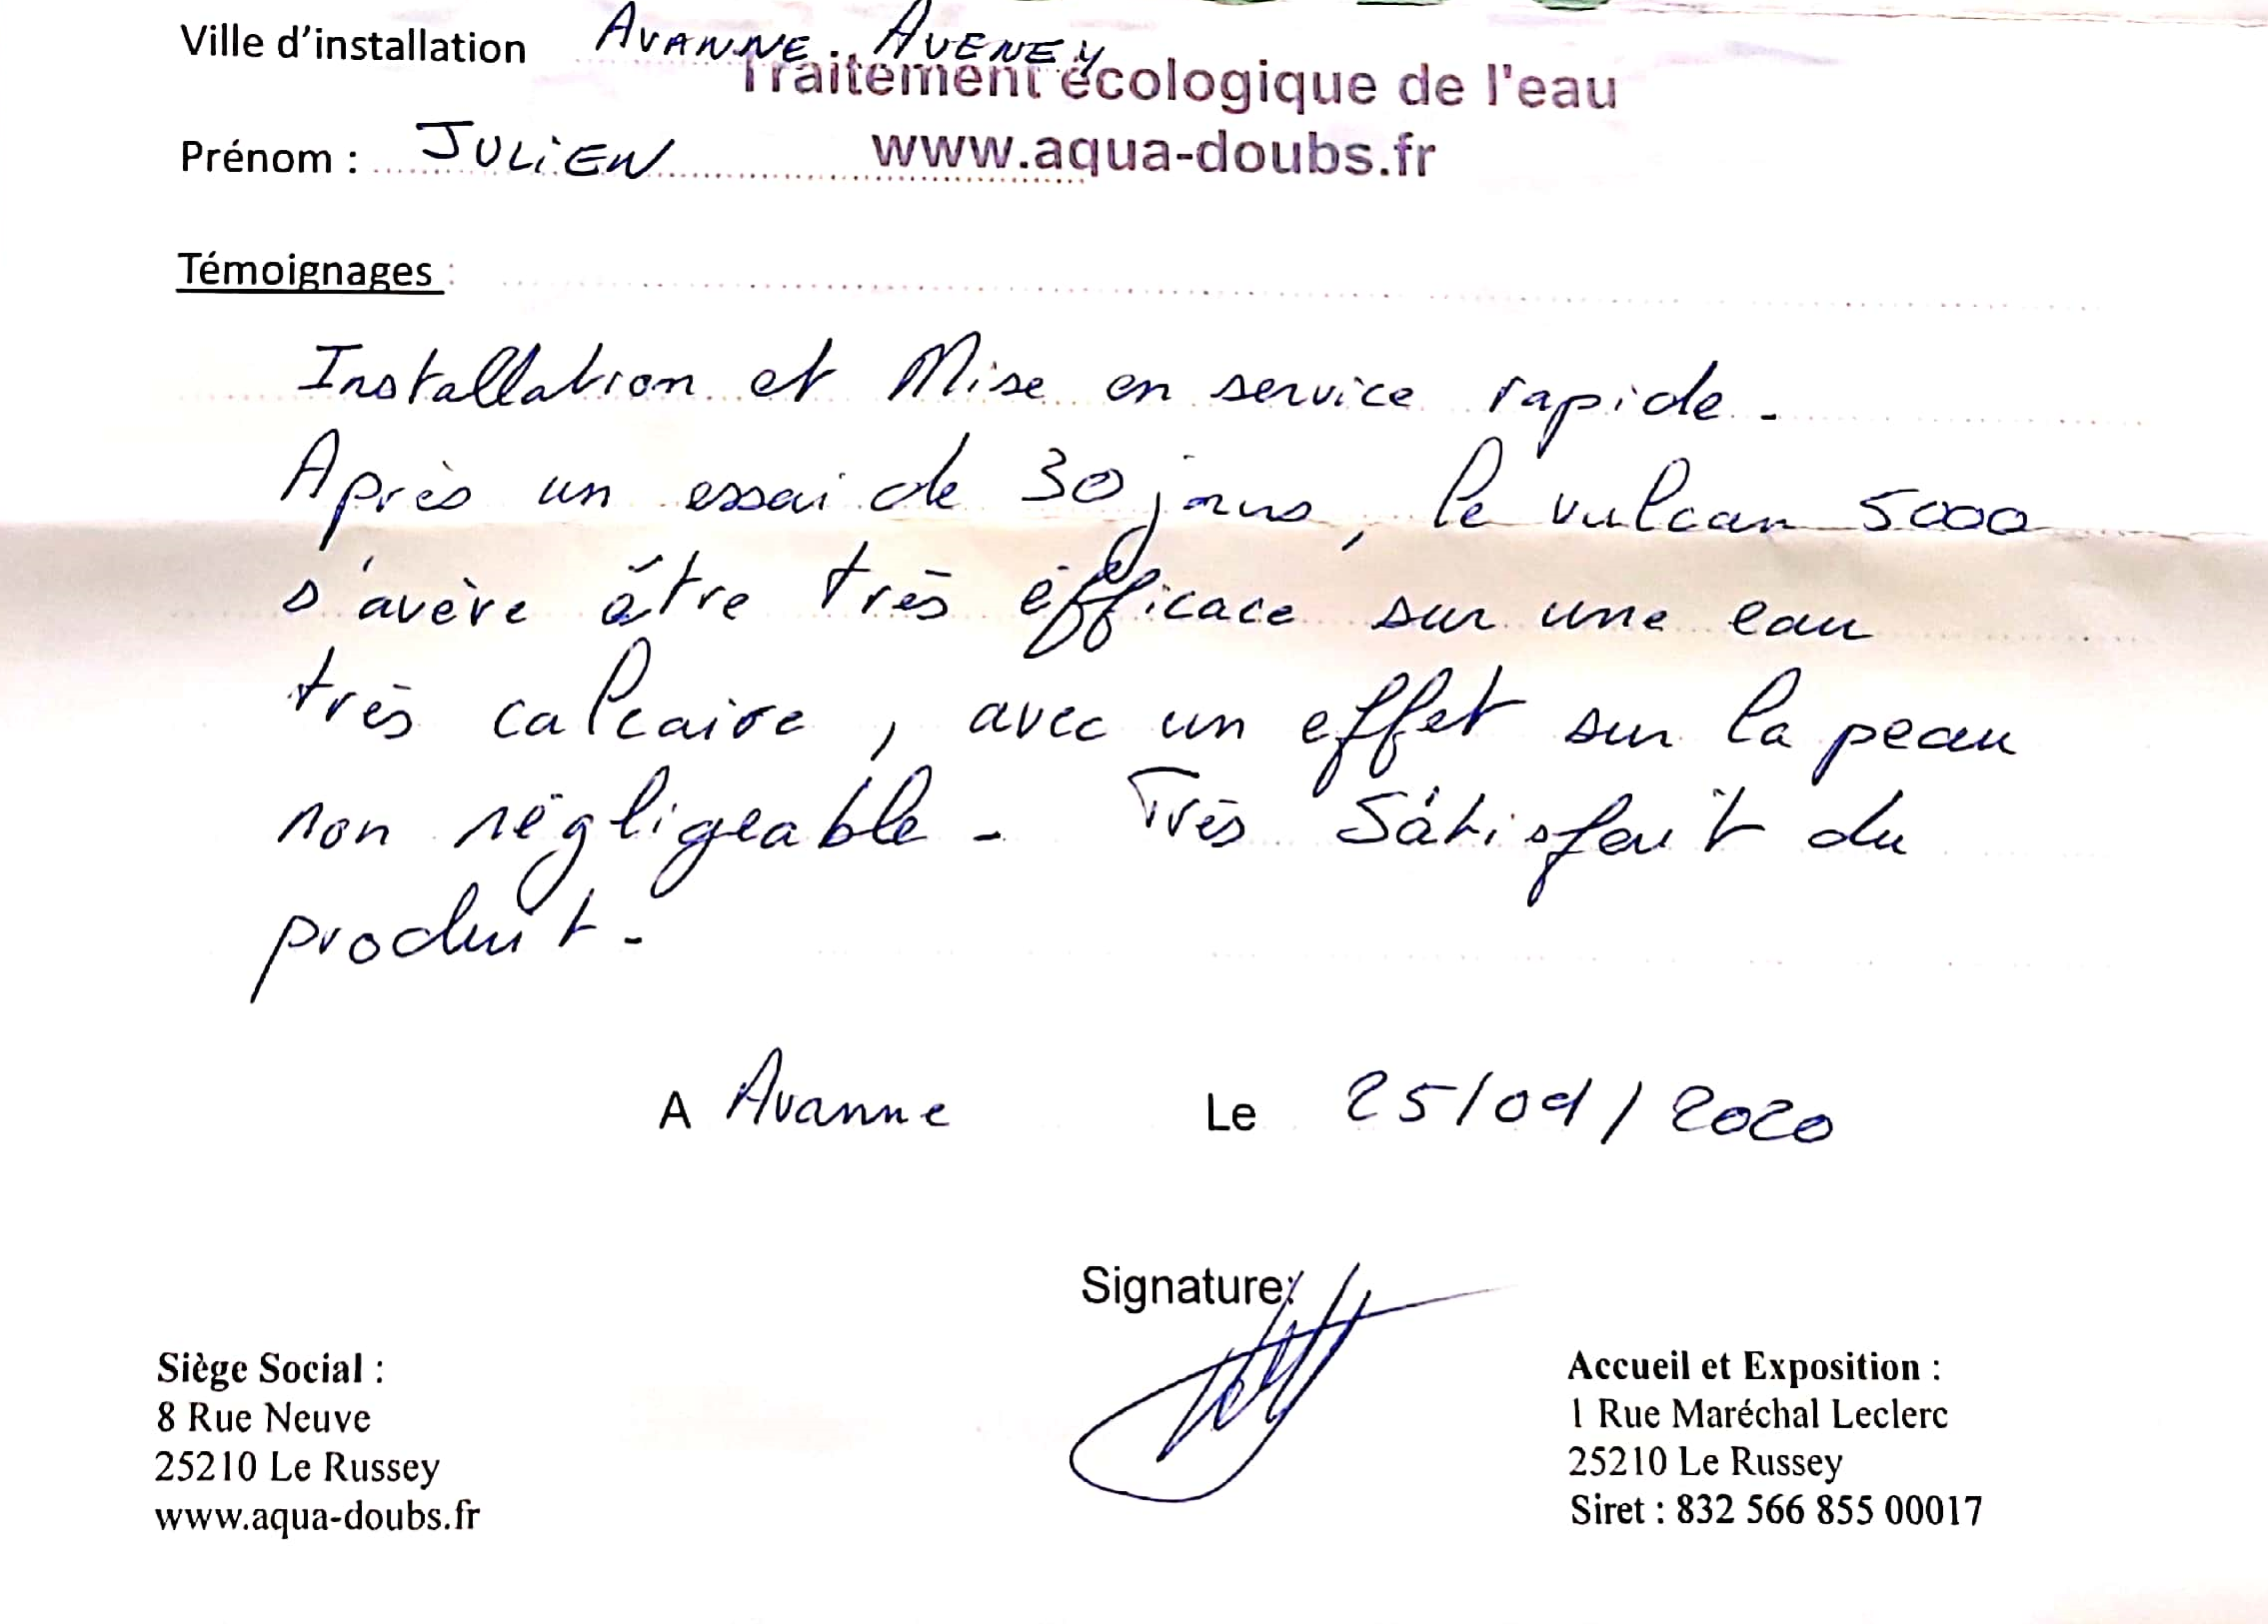 Ville d'installation AVANNE. AVENEY
Traitement écologique de l'eau
Prénom : JULiEN
www.aqua-doubs.fr
Témoignages :
Installation et Mise en service rapide.
Après un essai de 30 jours, le vulcan 5000
s'avère être très éfficace sur une eau
très calcaire, avec un effet sur la peau
non négligeable. Très Satisfait du
produit.
A Avanne Le 25/09/2020
Signature:
Siège Social :
8 Rue Neuve
25210 Le Russey
www.aqua-doubs.fr
Accueil et Exposition :
1 Rue Maréchal Leclerc
25210 Le Russey
Siret : 832 566 855 00017